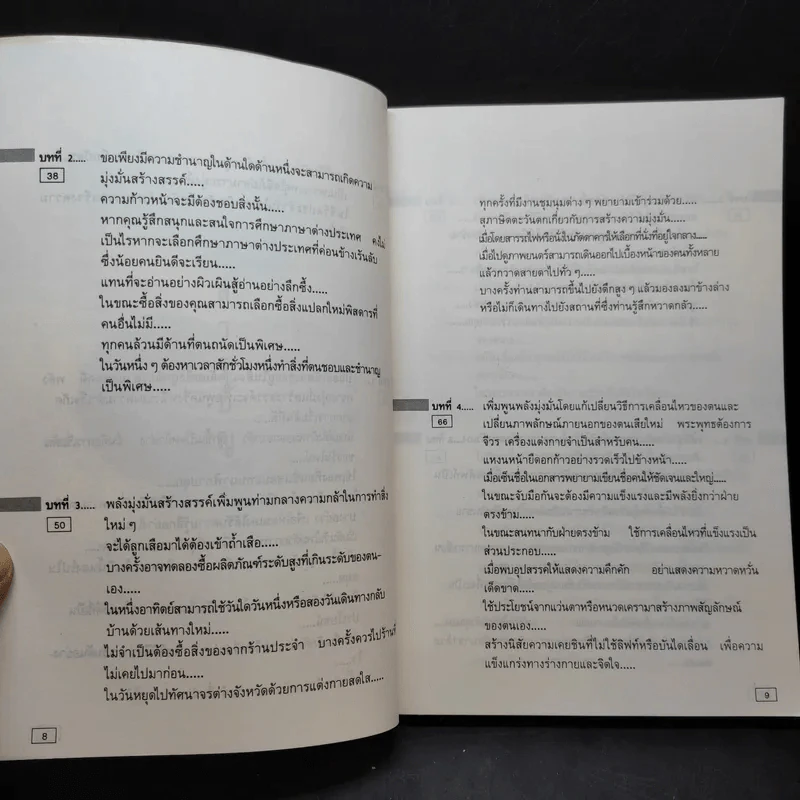 บทที่ 2..... ขอเพียงมีความชำนาญในด้านใดด้านหนึ่งจะสามารถเกิดความ
38 มุ่งมั่นสร้างสรรค์.....
ความก้าวหน้าจะมีต้องชอบสิ่งนั้น.....
หากคุณรู้สึกสนุกและสนใจการศึกษาภาษาต่างประเทศ คงไม่
เป็นไรหากจะเลือกศึกษาภาษาต่างประเทศที่ค่อนข้างเร้นลับ
ซึ่งน้อยคนยินดีจะเรียน.....
แทนที่จะอ่านอย่างผิวเผินสู้อ่านอย่างลึกซึ้ง.....
ในขณะซื้อสิ่งของคุณสามารถเลือกซื้อสิ่งแปลกใหม่พิสดารที่
คนอื่นไม่มี.....
ทุกคนล้วนมีด้านที่ตนถนัดเป็นพิเศษ.....
ในวันหนึ่ง ๆ ต้องหาเวลาสักชั่วโมงหนึ่งทำสิ่งที่ตนชอบและชำนาญ
เป็นพิเศษ.....
บทที่ 3..... พลังมุ่งมั่นสร้างสรรค์เพิ่มพูนท่ามกลางความกล้าในการทำสิ่ง
50 ใหม่ ๆ
จะได้ลูกเสือมาได้ต้องเข้าถ้ำเสือ.....
บางครั้งอาจทดลองซื้อผลิตภัณฑ์ระดับสูงที่เกินระดับของตน-
เอง.....
ในหนึ่งอาทิตย์สามารถใช้วันใดวันหนึ่งหรือสองวันเดินทางกลับ
บ้านด้วยเส้นทางใหม่.....
ไม่จำเป็นต้องซื้อสิ่งของจากร้านประจำ บางครั้งควรไปร้านที่
ไม่เคยไปมาก่อน.....
ในวันหยุดไปทัศนาจรต่างจังหวัดด้วยการแต่งกายสดใส.....
8
ทุกครั้งที่มีงานชุมนุมต่าง ๆ พยายามเข้าร่วมด้วย.....
สุภาษิตตะวันตกเกี่ยวกับการสร้างความมุ่งมั่น.....
เมื่อโดยสารรถไฟหรือนั่งในภัตตาคารให้เลือกที่นั่งที่อยู่ใจกลาง.....
เมื่อไปดูภาพยนตร์สามารถเดินออกไปเบื้องหน้าของคนทั้งหลาย
แล้วกวาดสายตาไปทั่ว ๆ.....
บางครั้งท่านสามารถขึ้นไปยังตึกสูง ๆ แล้วมองลงมาข้างล่าง
หรือไม่ก็เดินทางไปยังสถานที่ซึ่งท่านรู้สึกหวาดกลัว.....
บทที่ 4..... เพิ่มพูนพลังมุ่งมั่นโดยแก้เปลี่ยนวิธีการเคลื่อนไหวของตนและ
66 เปลี่ยนภาพลักษณ์ภายนอกของตนเสียใหม่ พระพุทธต้องการ
จีวร เครื่องแต่งกายจำเป็นสำหรับคน.....
แหงนหน้ายืดอกก้าวอย่างรวดเร็วไปข้างหน้า.....
เมื่อเซ็นชื่อในเอกสารพยายามเขียนชื่อคนให้ชัดเจนและใหญ่.....
ในขณะจับมือกันจะต้องมีความแข็งแรงและมีพลังยิ่งกว่าฝ่าย
ตรงข้าม.....
ในขณะสนทนากับฝ่ายตรงข้าม ใช้การเคลื่อนไหวที่แข็งแรงเป็น
ส่วนประกอบ.....
เมื่อพบอุปสรรคให้แสดงความคึกคัก อย่าแสดงความหวาดหวั่น
เด็ดขาด.....
ใช้ประโยชน์จากแว่นตาหรือหนวดเครามาสร้างภาพสัญลักษณ์
ของตนเอง.....
สร้างนิสัยความเคยชินที่ไม่ใช้ลิฟท์หรือบันไดเลื่อน เพื่อความ
แข็งแกร่งทางร่างกายและจิตใจ.....
9